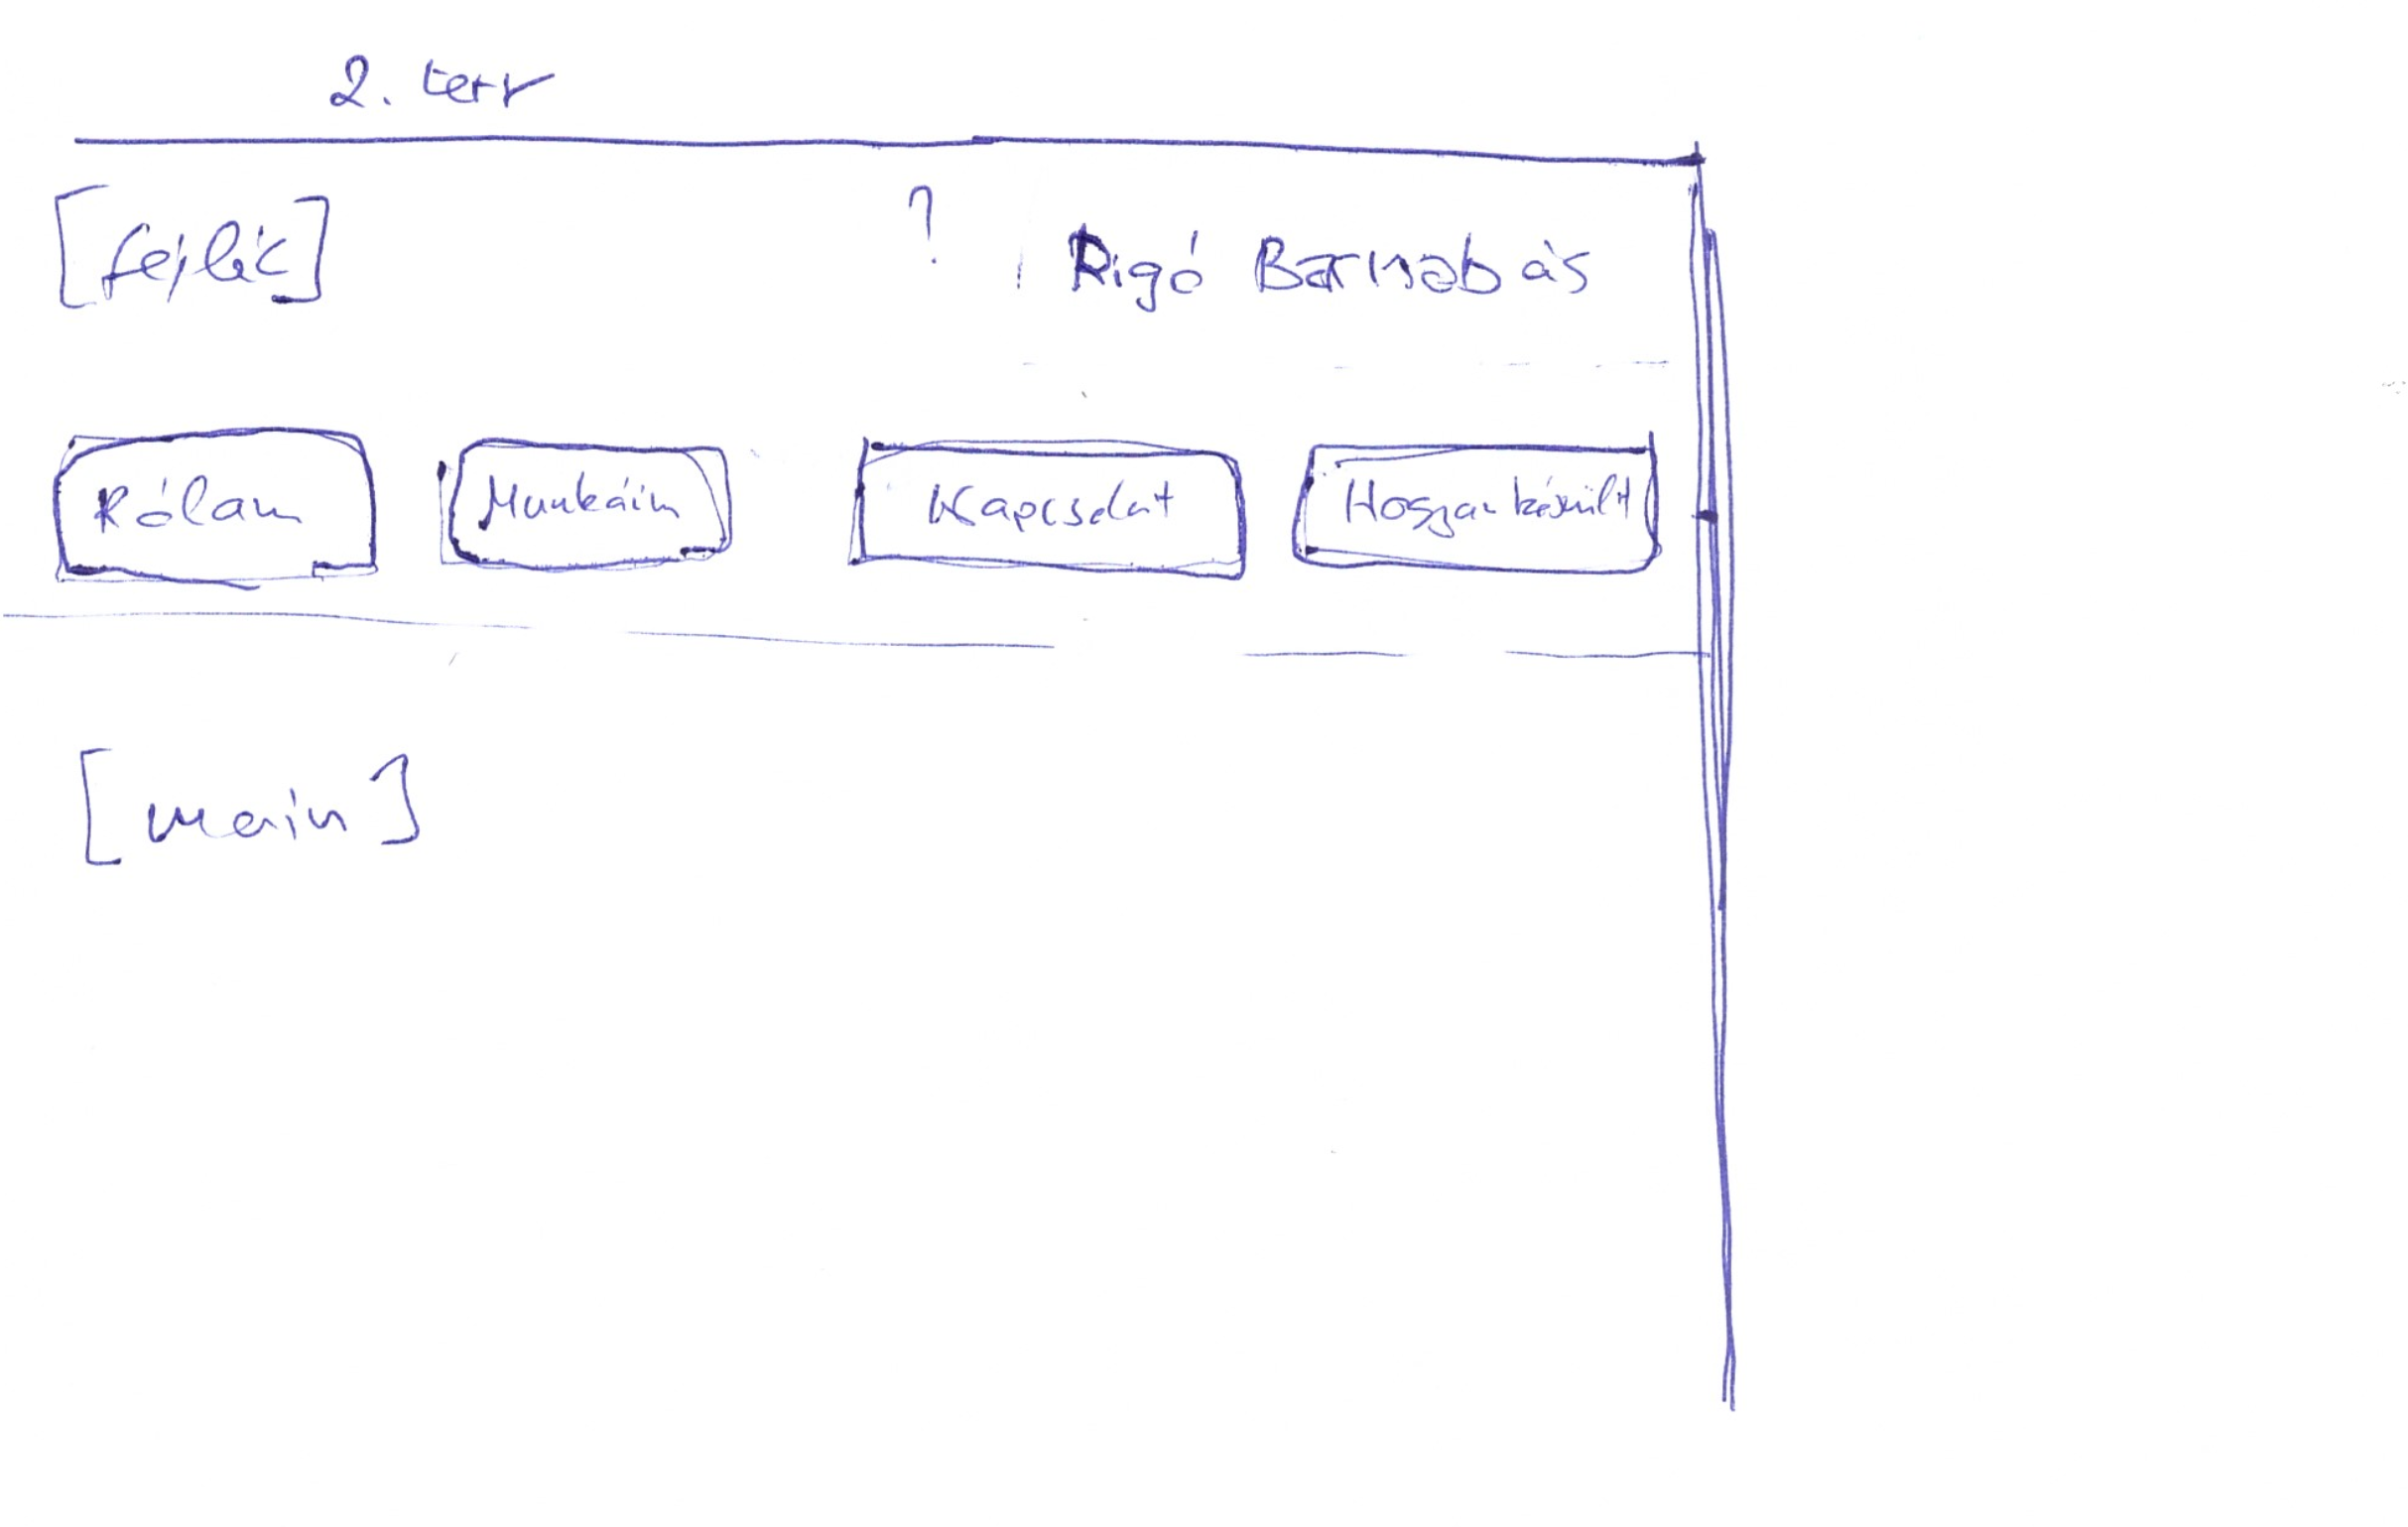 2. terv
[fejléc] ? Rigó Barnabás
Rólam Munkáim Kapcsolat Hogyan készült
[main]